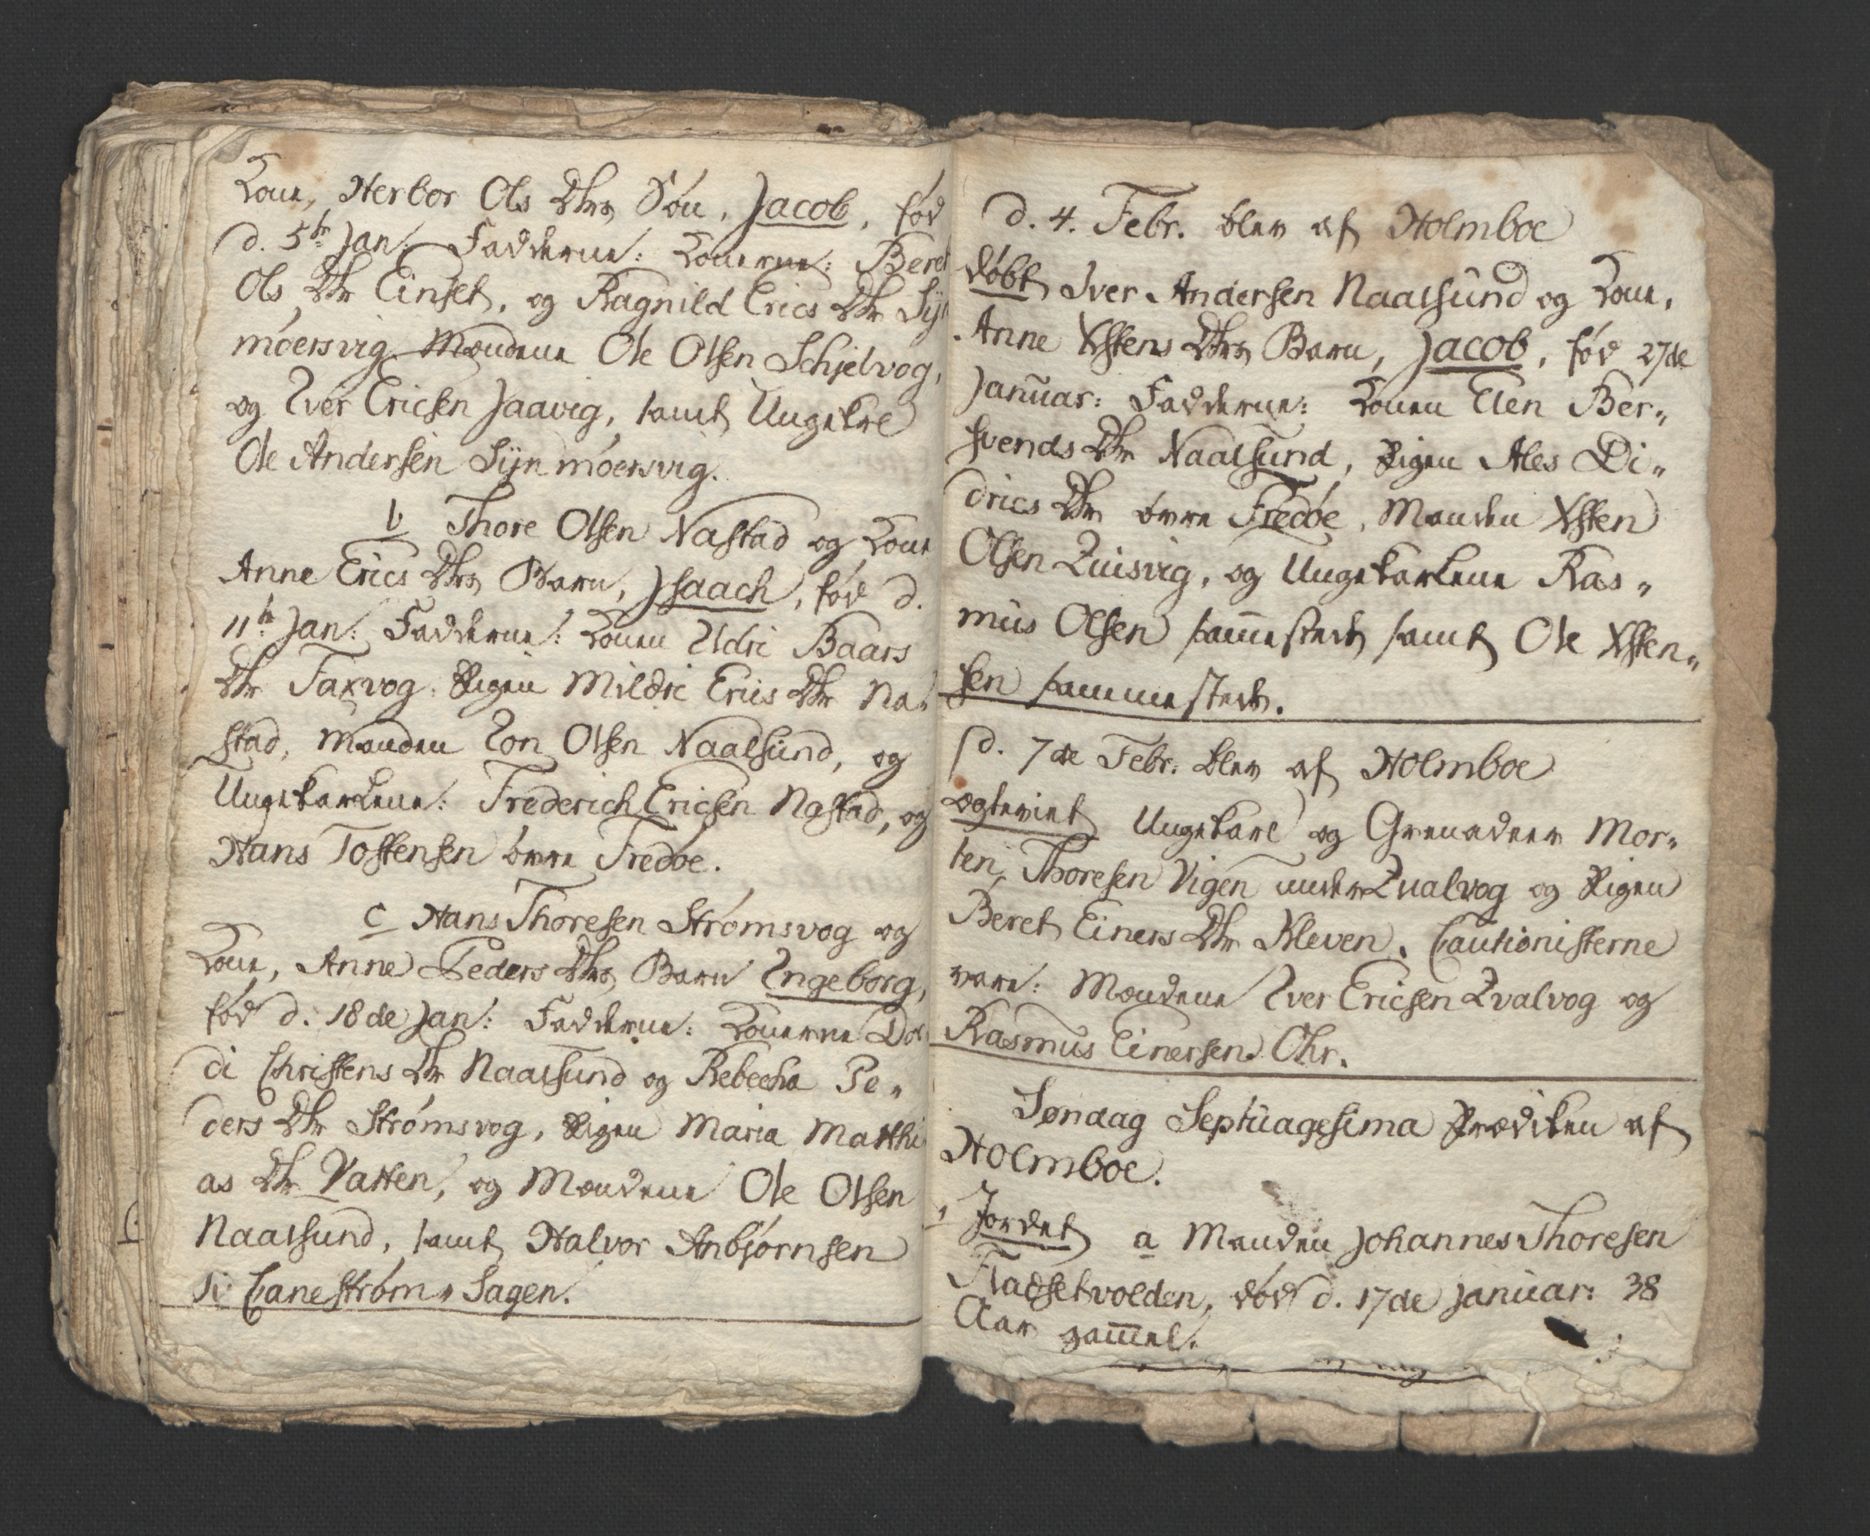 Kone, Herbor Ols Dtrs Søn, Jacob, fød
d. 5te Jan: Fadderne: Konerne: Beret
Ols Dtr Einset, og Ragnild Erics Dtr Sÿn
møersvig, Mændene Ole Olsen Schjelvog,
og Iver Ericsen Jaavig, samt Ungekarl
Ole Andersen Sÿnmøersvig.
b Thore Olsen Nastad og Kone
Anne Erics Dtrs Barn, Isaach, fød d.
11te Jan: Fadderne: Konen Udri Baars
Dtr Taxvog, Pigen Mildri Erics Dtr Na-
stad, Manden Ion Olsen Naalsund, og
Ungekarlene: Frederich Ericsen Nastad, og
Hans Tostensen øvre Fredøe.
c Hans Thoresen Strømsvog og
Kone, Anne Peders Dtrs Barn Ingeborg,
fød d. 18de Jan: Fadderne: Konerne Dor
di Christens Dtr Naalsund og Rebecha Pe-
ders Dtr Strømsvog, Pigen Maria Matthi
as Dtr Vatten, og Mændene Ole Olsen
Naalsund, samt Halvor Anbjørnsen
Canestrøm Sagen.
d. 4. Febr. blev af Holmboe
døbt Iver Andersen Naalsund og Kone,
Anne Xstens Dtrs Barn, Jacob, fød 27de
Januar: Fadderne: Konen Elen Ber-
svends Dtr Naalsund, Pigen Ales Di-
drics Dtr øvre Fredøe, Manden Xsten
Olsen Quisvig, og Ungekarlene Ras-
mus Olsen sam̅ested samt Ole Xsten-
sen sammested.
d. 7de Febr: blev af Holmboe
ægteviet Ungekarl og Grenadeer Mor-
ten Thoresen Vigen under Qualvog og Pigen
Beret Einers Dtr Kleven. Cautionisterne
vare: Mændene Iver Ericsen Qvalvog og
Rasmus Einersen Ohr.
Søndag Septuagesima Prædiken af
Holmboe.
Jordet a Manden Johannes Thoresen
Fladsetvolden, død d. 17de Januar: 38
Aar gam̅el.